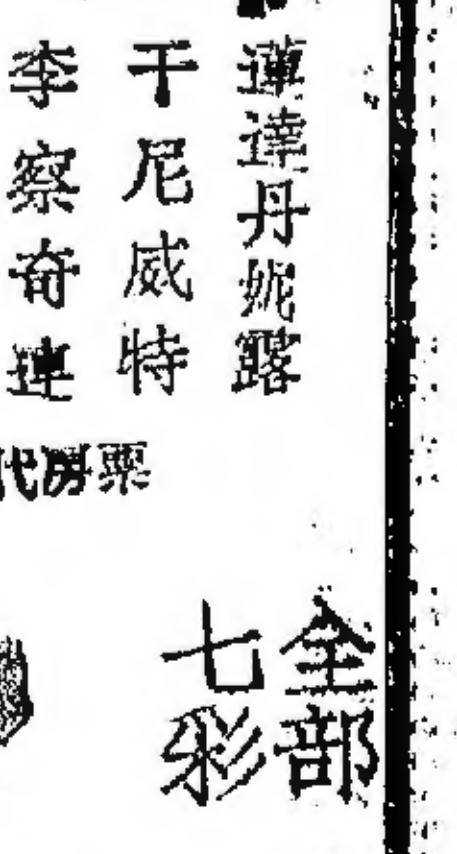 蓮達丹妮露
干尼威特
李察奇連
票房代
全部
七彩